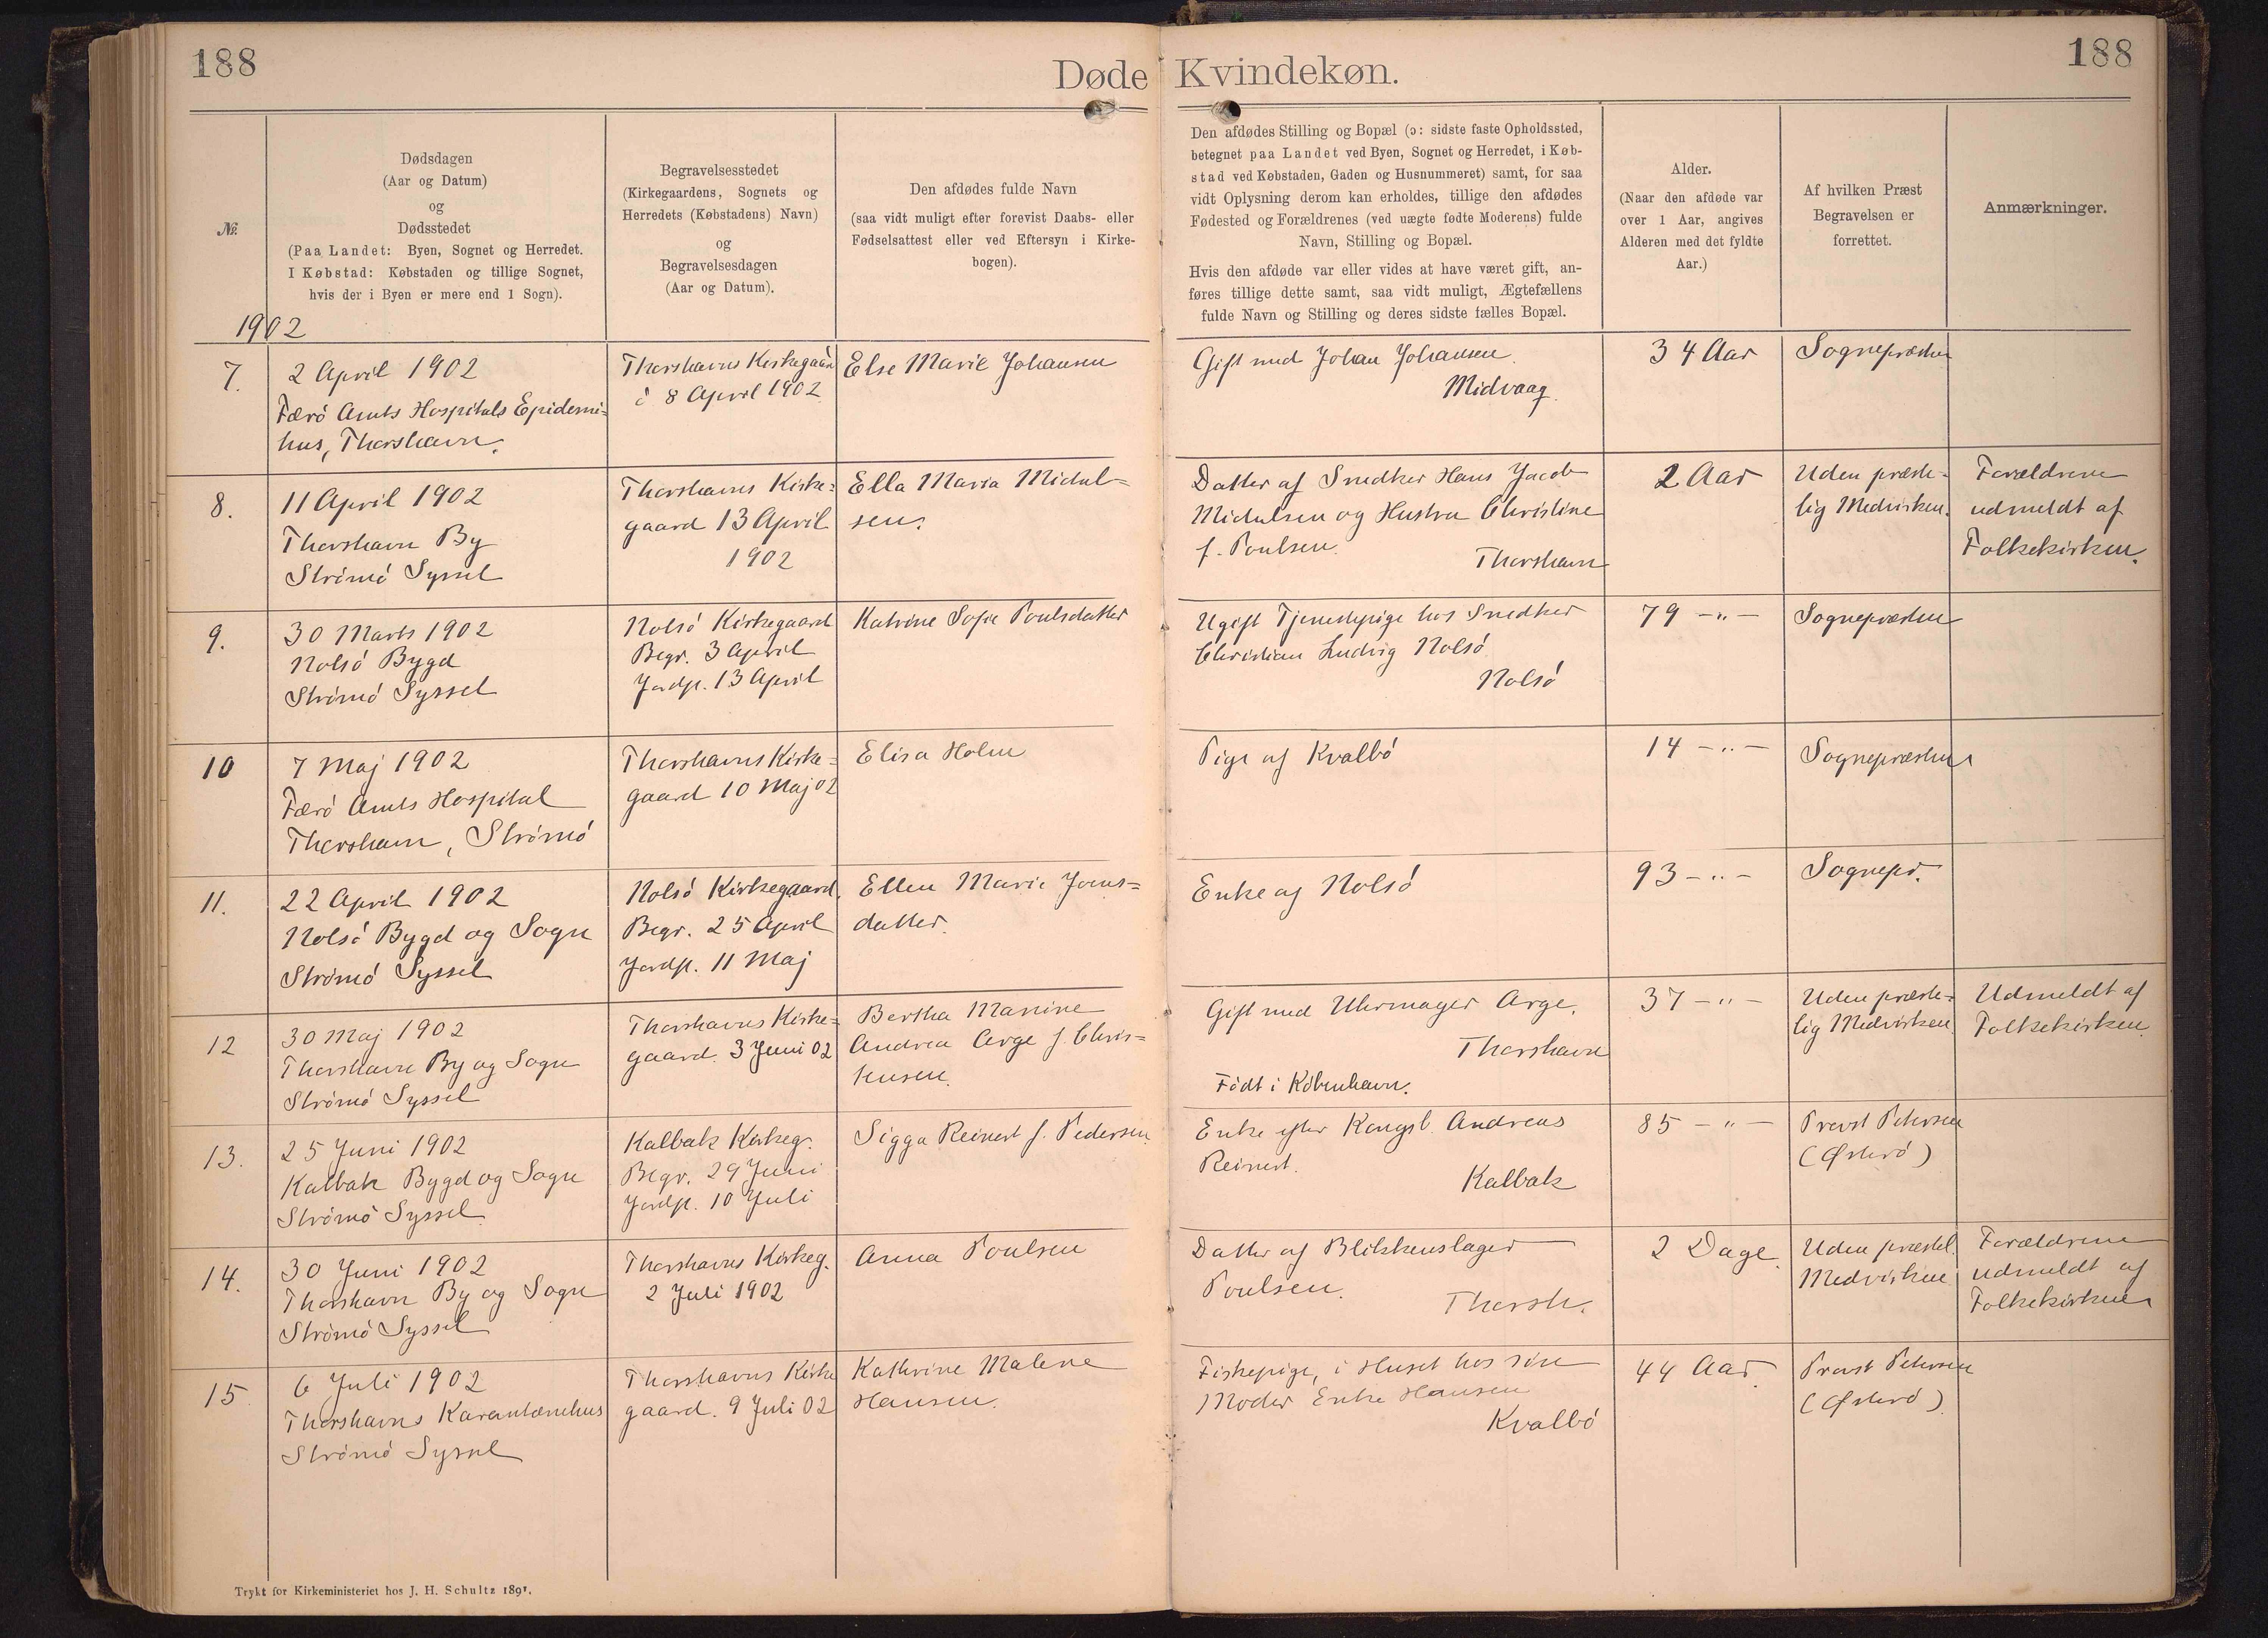 188
Døde Kvindekøn.
188
№.
Dødsdagen
(Aar og Datum)
og
Dødsstedet
(Paa Landet: Byen, Sognet og Herredet.
I Købstad: Købstaden og tillige Sognet,
hvis der i Byen er mere end 1 Sogn).
Begravelsesstedet
(Kirkegaardens, Sognets og
Herredets (Købstadens) Navn)
og
Begravelsesdagen
(Aar og Datum).
Den afdødes fulde Navn
(saa vidt muligt efter forevist Daabs- eller
Fødselsattest eller ved Eftersyn i Kirke-
bogen).
Den afdødes Stilling og Bopæl (ɔ: sidste faste Opholdssted,
betegnet paa Landet ved Byen, Sognet og Herredet, i Køb-
stad ved Købstaden, Gaden og Husnummeret) samt, for saa
vidt Oplysning derom kan erholdes, tillige den afdødes
Fødested og Forældrenes (ved uægte fødte Moderens) fulde
Navn, Stilling og Bopæl.
Hvis den afdøde var eller vides at have været gift, an-
føres tillige dette samt, saa vidt muligt, Ægtefællens
fulde Navn og Stilling og deres sidste fælles Bopæl.
Alder.
(Naar den afdøde var
over 1 Aar, angives
Alderen med det fyldte
Aar.)
Af hvilken Præst
Begravelsen er
forrettet.
Anmærkninger.
1902
7.
2 April 1902
Færö Amts Hospitals Epidemi=
hus, Thorshavn.
Thorshavns Kirkegaard
8 April 1902
Else Marie Johansen
Gift med Johan Johansen
Midvaag.
34 Aar
Sognepræsten
8.
11 April 1902
Thorshavn By
Strömö Syssel
Thorshavns Kirke=
gaard 13 April
1902
Ella Maria Michel=
sen.
Datter af Snedker Hans Jacob
Michelsen og Hustru Christine
f. Poulsen.
Thorshavn
2 Aar
Uden præste=
lig Medvirken.
Forældrene
udmeldt af
Folkekirken.
9.
30 Marts 1902
Nolsö Bygd
Strömö Syssel
Nolsö Kirkegaard
Begr. 3 April
Jordp. 13 April
Katrine Sofie Poulsdatter
Ugift Tjenestepige hos Snedker
Christian Ludvig Nolsö
Nolsö
79 -„-
Sognepræsten
10
7 Maj 1902
Færö Amts Hospital
Thorshavn, Strömö
Thorshavns Kirke=
gaard 10 Maj 02
Elisa Holm
Pige af Kvalbö
14 -„-
Sognepræsten
11.
22 April 1902
Nolsö Bygd og Sogn
Strömö Syssel
Nolsö Kirkegaard.
Begr. 25 April
Jordp. 11 Maj
Ellen Marie Joens=
datter.
Enke af Nolsö
93 -„-
Sognepr.
12
30 Maj 1902
Thorshavn By og Sogn
Strömö Syssel
Thorshavns Kirke=
gaard. 3 Juni 02
Bertha Marine
Andrea Arge f. Chris=
tensen.
Gift med Uhrmager Arge.
Thorshavn
Födt i Köbenhavn.
37 -„-
Uden præste=
lig Medvirken
Udmeldt af
Folkekirken.
13.
25 Juni 1902
Kalbak Bygd og Sogn
Strömö Syssel
Kalbak Kirkeg.
Begr. 29 Juni
Jordp. 10 Juli
Sigga Reinert f. Pedersen.
Enke efter Kongsb. Andreas
Reinert.
Kalbak
85 -„-
Provst Petersen
(Østerö)
14.
30 Juni 1902
Thorshavn By og Sogn
Strömö Syssel
Thorshavns Kirkeg.
2 Juli 1902
Anna Poulsen
Datter af Blikkenslager
Poulsen.
Thorsh.
2 Dage.
Uden præstel.
Medvirken
Forældrene
udmeldt af
Folkekirken
15
6 Juli 1902
Thorshavns Karantænehus
Strömö Syssel
Thorshavns Kirke
gaard. 9 Juli 02
Kathrine Malene
Hansen.
Fiskepige, i Huset hos sin
Moder Enke Hansen
Kvalbö
44 Aar.
Provst Petersen
(Østerö)
Trykt for Kirkeministeriet hos J. H. Schultz 1891.